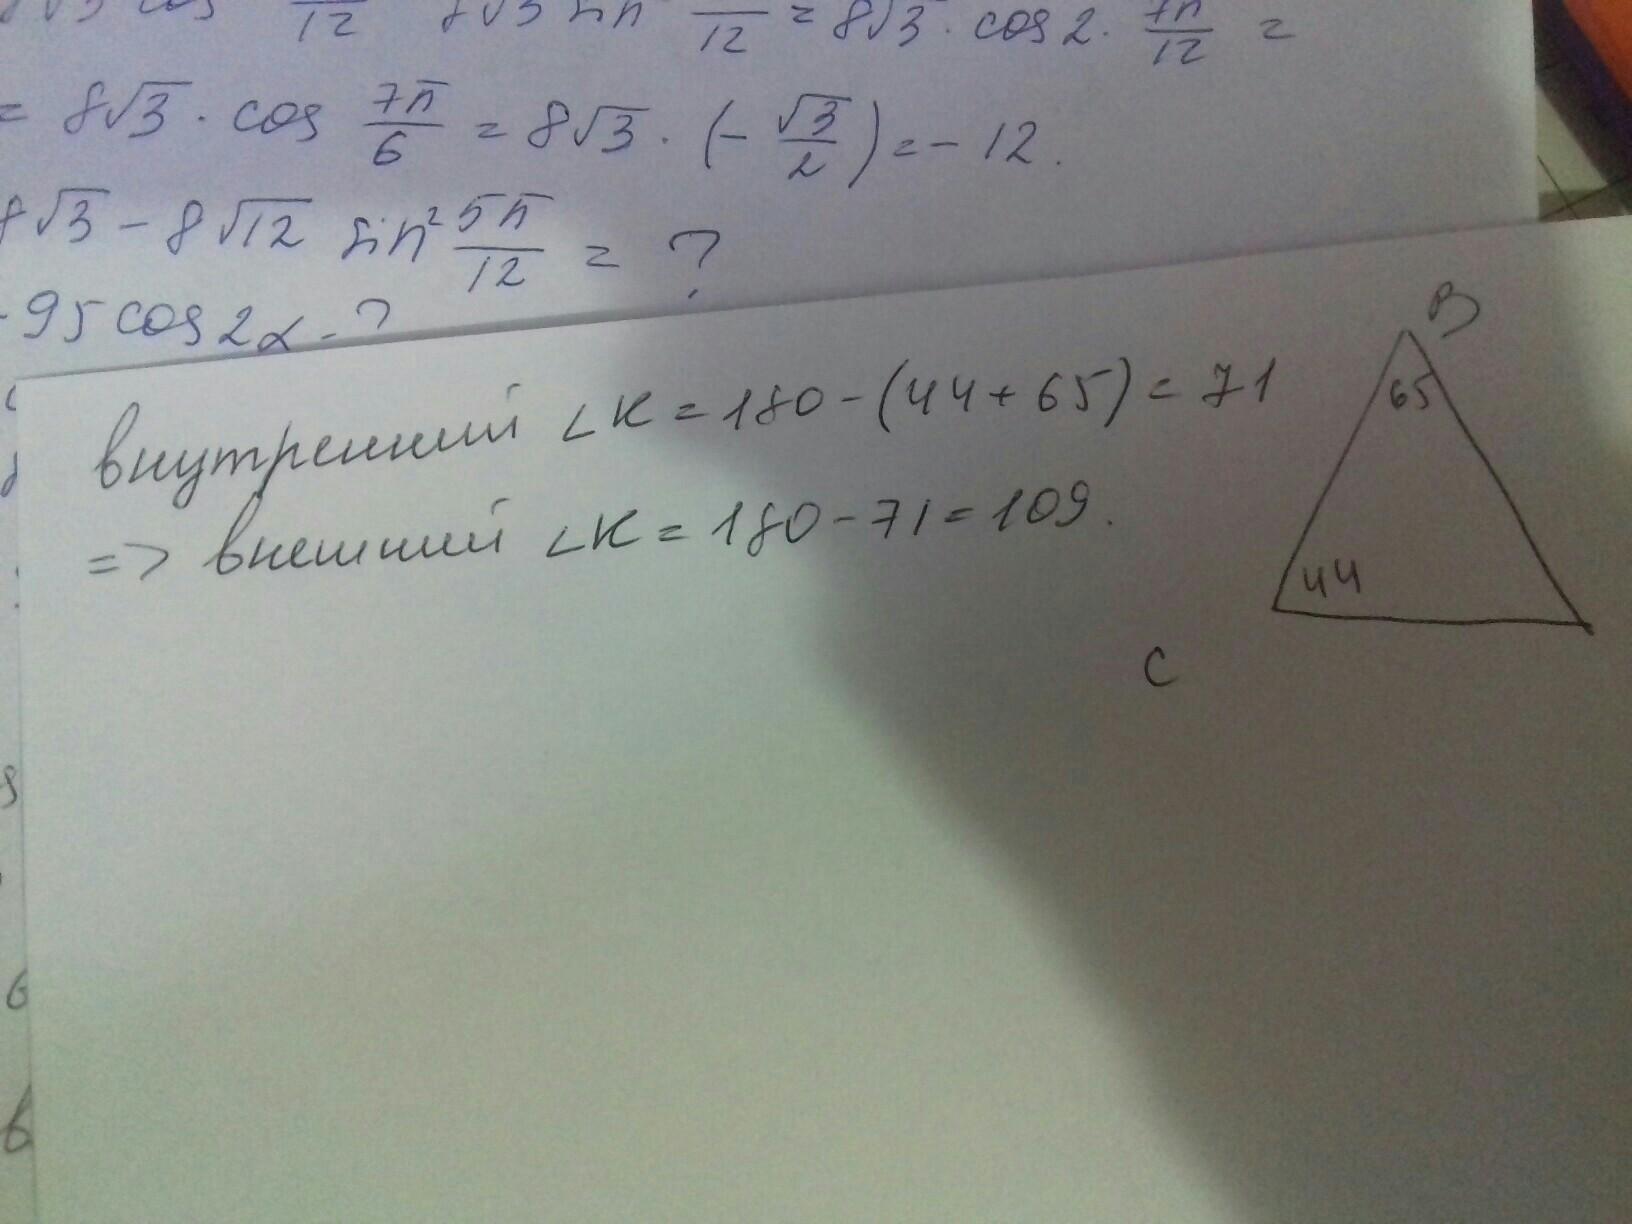 8√3 cos 12 8√3 sin 12 = 8√3 · cos 2 · 7π/12 =
= 8√3 · cos 7π/6 = 8√3 · (- √3/2) = - 12.
8√3 - 8√12 sin² 5π/12 = ?
- 95 cos 2α - ?
внутренний ∠K = 180 - (44 + 65) = 71
=> внешний ∠K = 180 - 71 = 109.
B
65
44
C